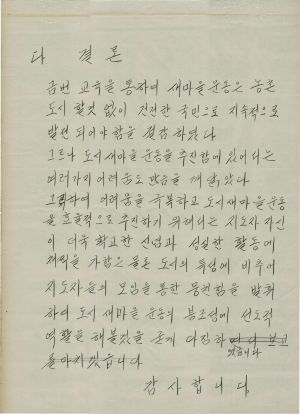 다 결론
금번 교육을 통하여 새마을 운동은 농촌
도시 할것 없이 건전한 국민으로 지속적으로
발전 되어야 함을 절감 하였다
그러나 도시새마을 운동을 추진함에 있어서는
여러가지 어려움도 많음을 깨달았다
그리하여 어려움을 극복하고 도시새마을운동
을 효율적으로 추진하기 위해서는 지도자 자신
이 더욱 확고한 신념과 성실한 활동에
채찍을 가함은 물론 도시의 특성에 비추어
지도자들의 모임을 통한 동원력을 발휘
하여 도시 새마을 운동의 붐조성에 선도적
역활을 해볼것을 굳게 다짐하
였습니다
를 마치겠습니다
감사합니다